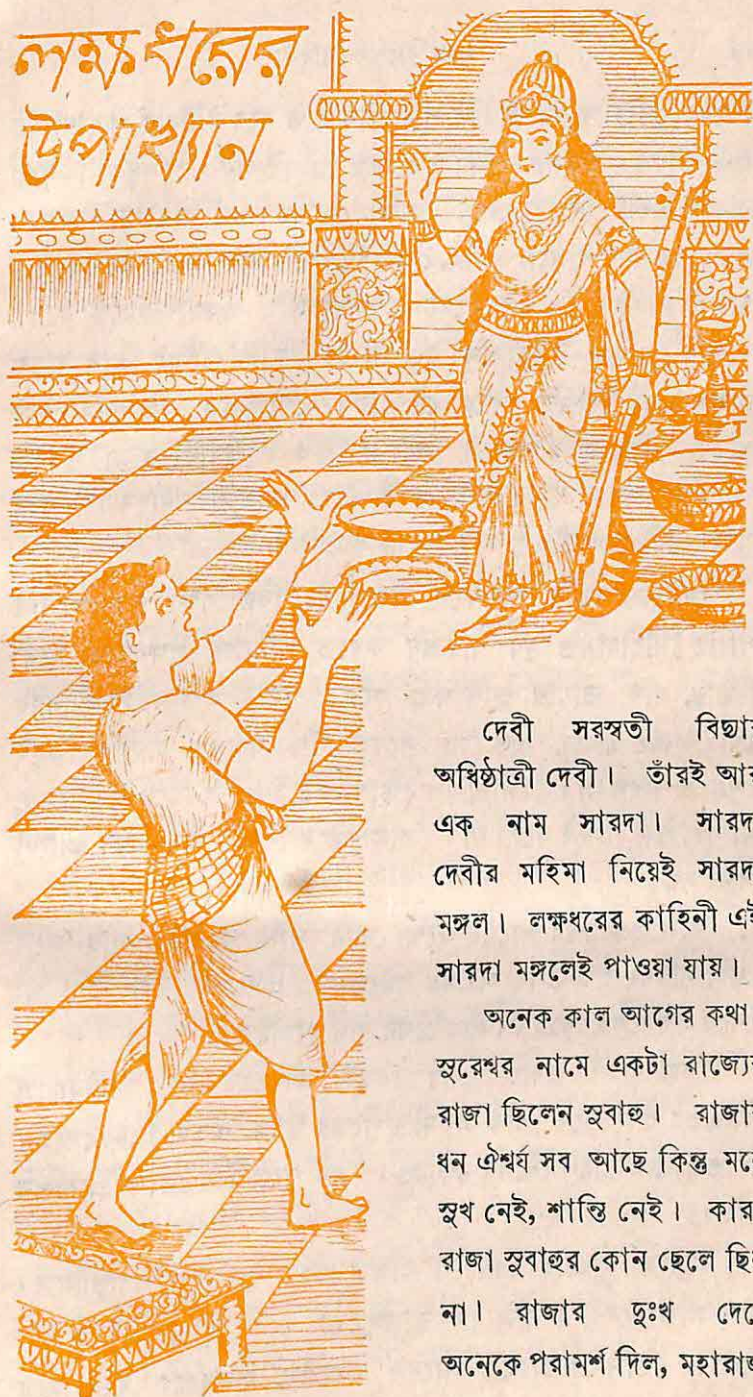 লক্ষধরের
উপাখ্যান
দেবী সরস্বতী বিদ্যার
অধিষ্ঠাত্রী দেবী। তাঁরই আর
এক নাম সারদা। সারদা
দেবীর মহিমা নিয়েই সারদা
মঙ্গল। লক্ষধরের কাহিনী এই
সারদা মঙ্গলেই পাওয়া যায়।
অনেক কাল আগের কথা
সুরেশ্বর নামে একটা রাজ্যের
রাজা ছিলেন সুবাহু। রাজার
ধন ঐশ্বর্য সব আছে কিন্তু মনে
সুখ নেই, শান্তি নেই। কারণ
রাজা সুবাহুর কোন ছেলে ছিল
না। রাজার দুঃখ দেখে
অনেকে পরামর্শ দিল, মহারাজ